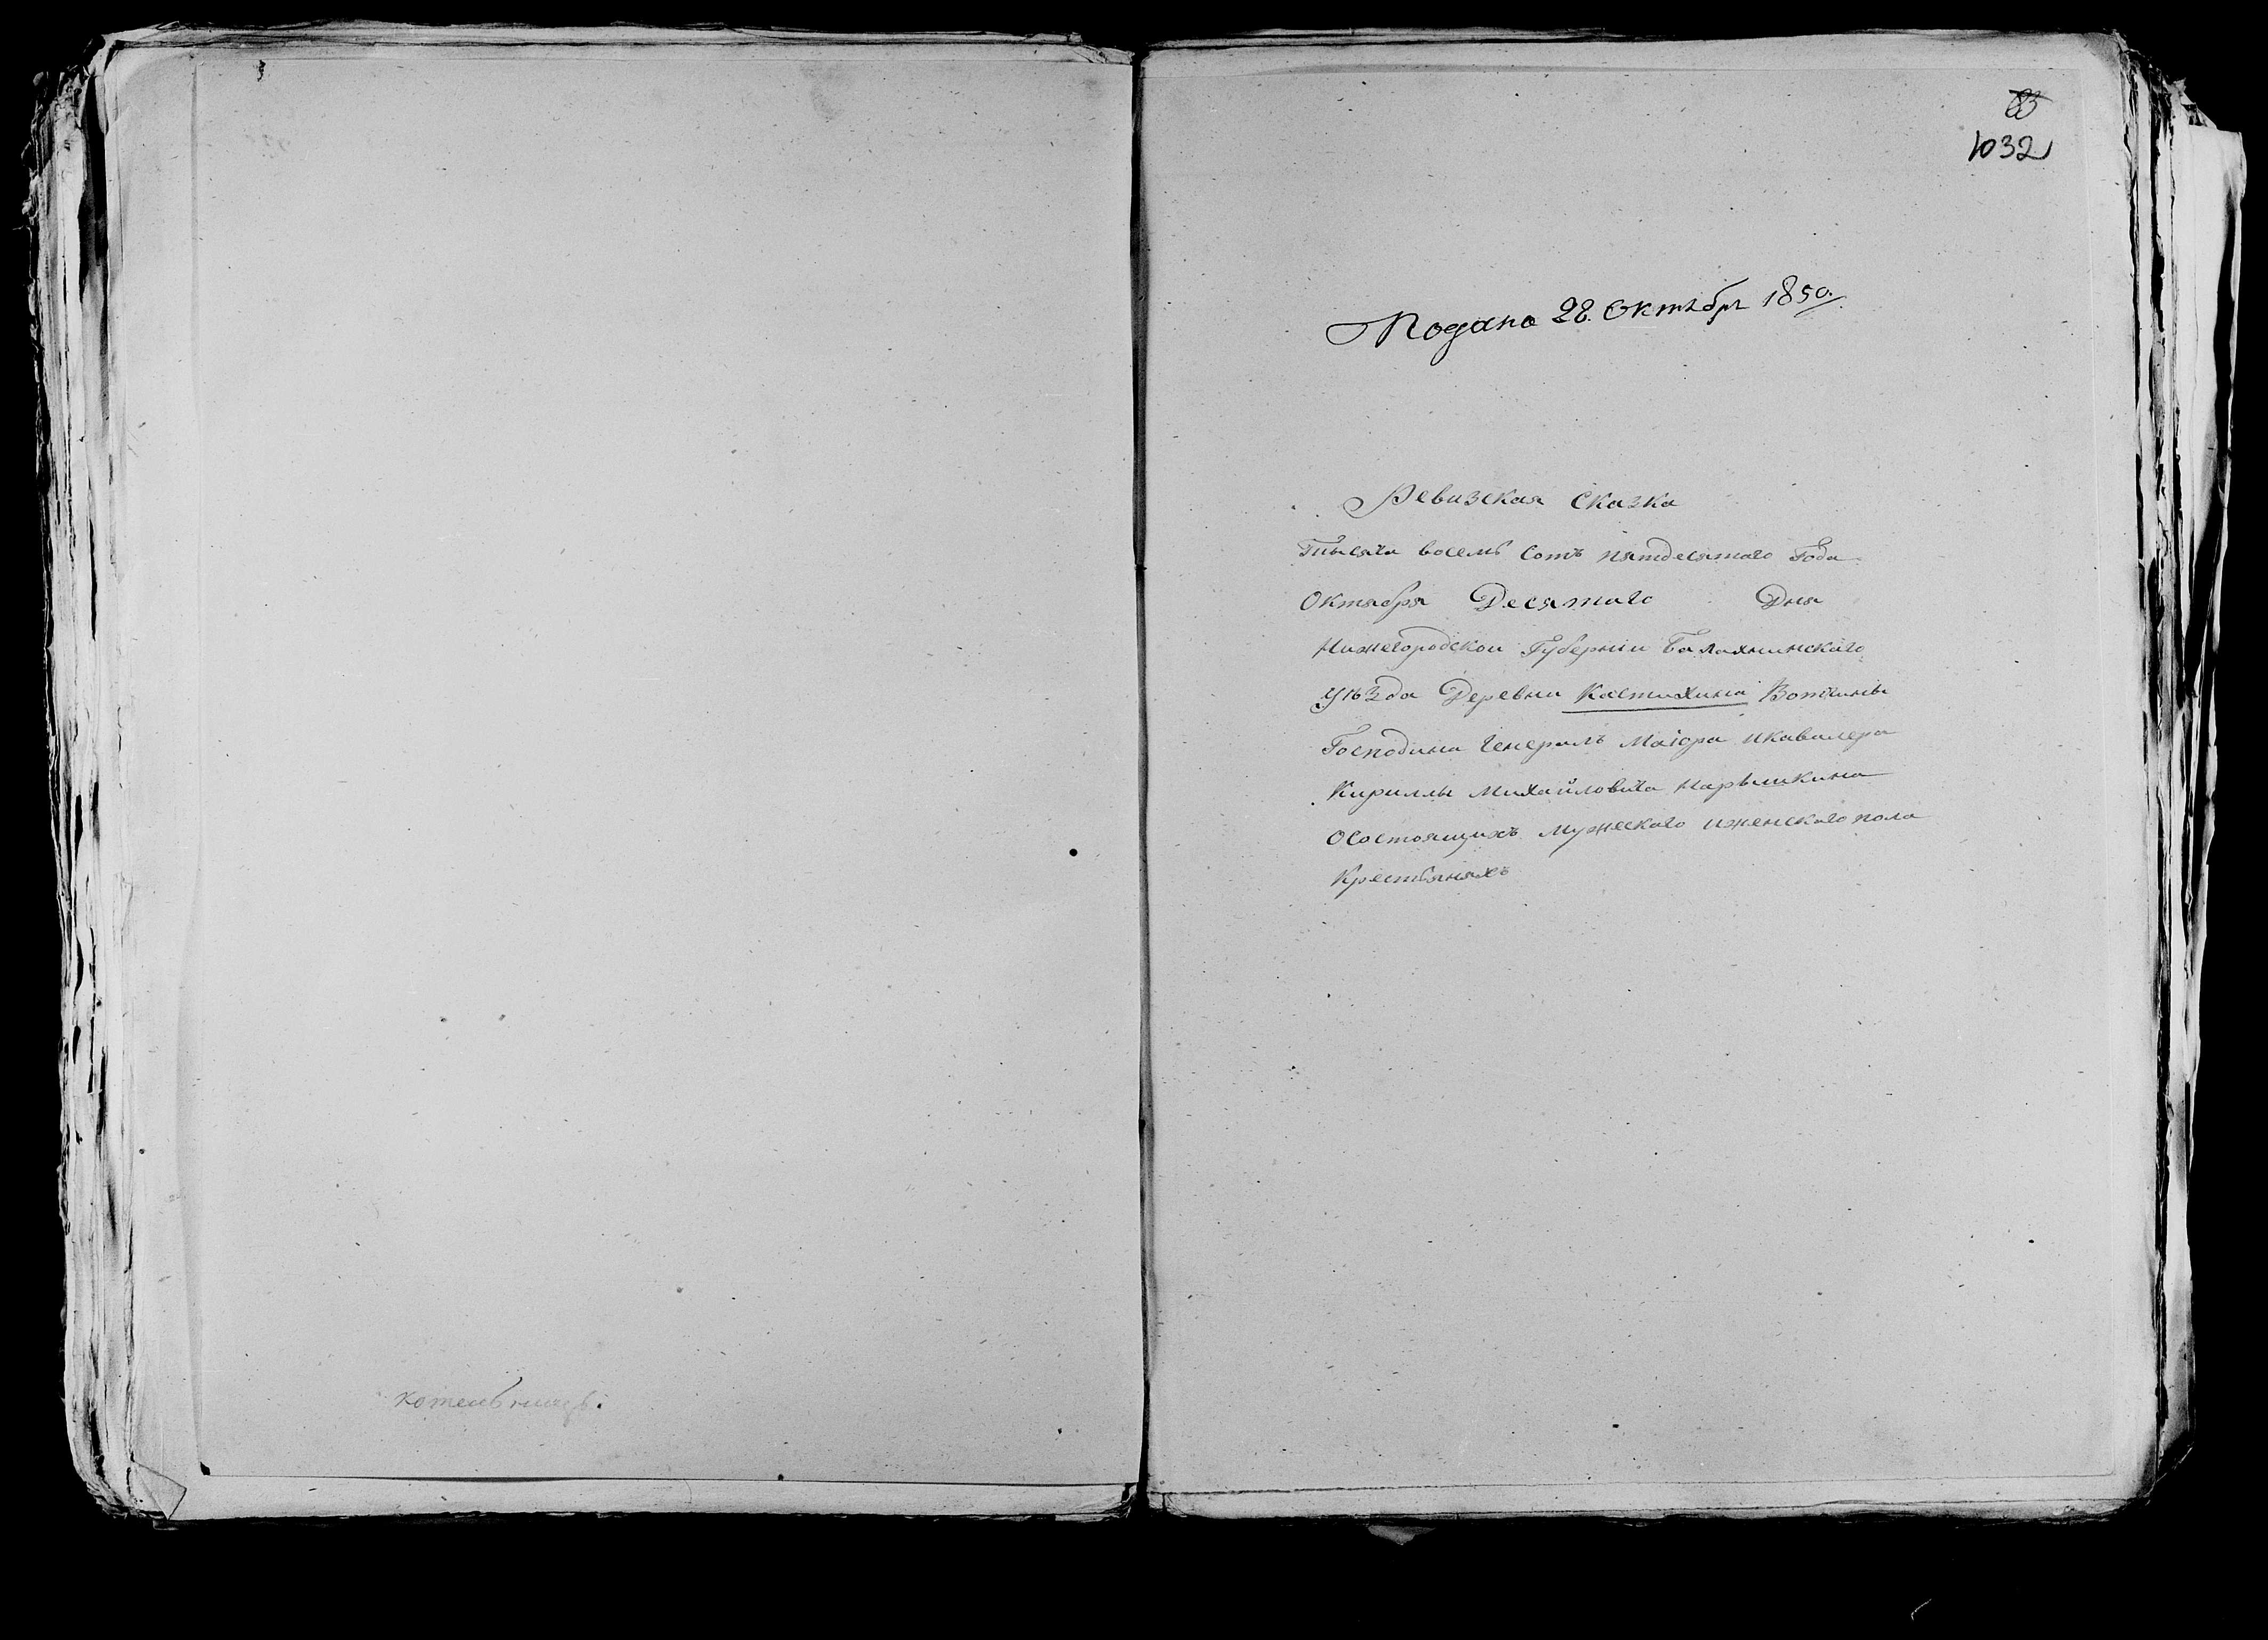 1032
Подано 28. Октября 1850.
Ревизская Сказка
Тысяча восемь Сотъ пятдесятаго Года
Октября Десятаго Дня
Нижегородской Губернии Балахнинскаго
Уѣзда Деревни Кастихина Вотчины
Господина Генералъ Маіора икавалера
Кириллы Михайловича Нарышкина
Осостоящихъ мужескаго иженскаго пола
Крестьянахъ